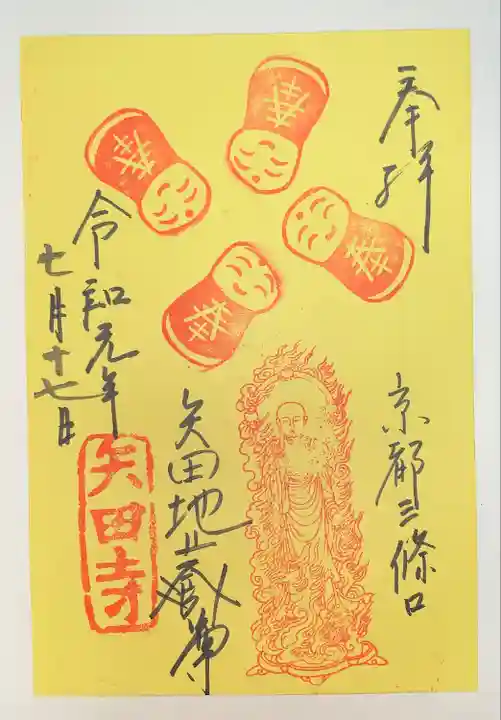 奉拝
京都三條口
矢田地蔵尊
令和元年
七月十七日
矢田寺
幸
幸
幸
幸